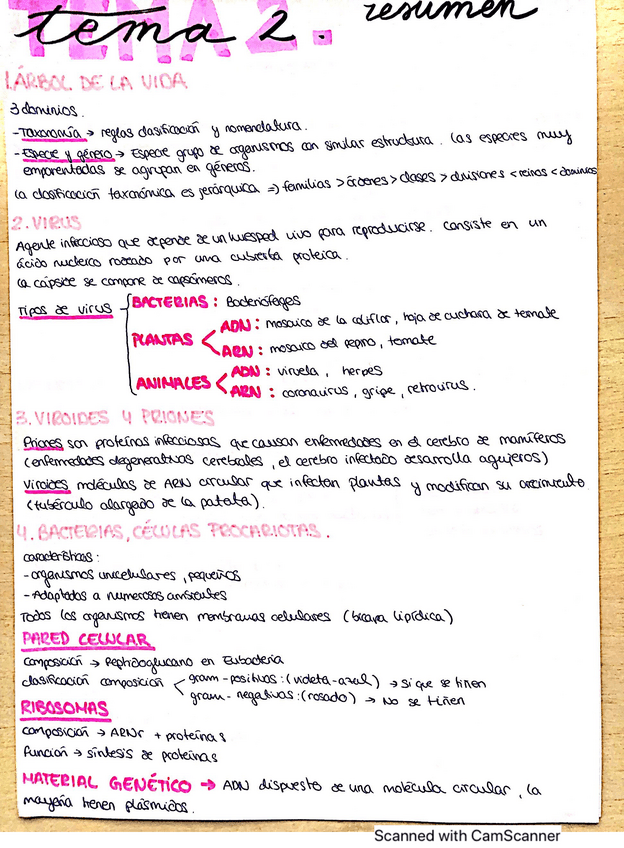 tema 2. resumen
1. ÁRBOL DE LA VIDA
3 dominios.
- Taxonomía → reglas clasificación y nomenclatura.
- Especie y género → Especie grupo de organismos con similar estructura. Las especies muy
emparentadas se agrupan en géneros.
La clasificación taxonómica es jerárquica => familias > órdenes > clases > divisiones < reinos < dominios
2. VIRUS
Agente infeccioso que depende de un huesped vivo para reproducirse. Consiste en un
ácido nucleico rodeado por una cubierta proteica.
La cápside se compone de capsómeros.
Tipos de virus
BACTERIAS: Bacteriófagos
PLANTAS
ADN: mosaico de la coliflor, hoja de cuchara de tomate
ARN: mosaico del pepino, tomate
ANIMALES
ADN: viruela, herpes
ARN: coronavirus, gripe, retrovirus.
3. VIROIDES Y PRIONES
Priones son proteínas infecciosas que causan enfermedades en el cerebro de mamíferos
(enfermedades degenerativas cerebrales, el cerebro infectado desarrolla agujeros)
Viroides moléculas de ARN circular que infectan plantas y modifican su crecimiento
(tubérculo alargado de la patata).
4. BACTERIAS, CÉLULAS PROCARIOTAS.
características:
- organismos unicelulares, pequeños
- Adaptados a numerosos ambientes
Todos los organismos tienen membranas celulares (bicapa lipídica)
PARED CELULAR
composición → Peptidoglucano en Eubacteria
clasificación composición
gram-positivas: (violeta-azul) → Si que se tiñen
gram-negativas: (rosado) → No se tiñen
RIBOSOMAS
composición → ARNr + proteínas
Función → síntesis de proteínas
MATERIAL GENÉTICO → ADN dispuesto de una molécula circular, la
mayoría tienen plásmidos.
Scanned with CamScanner